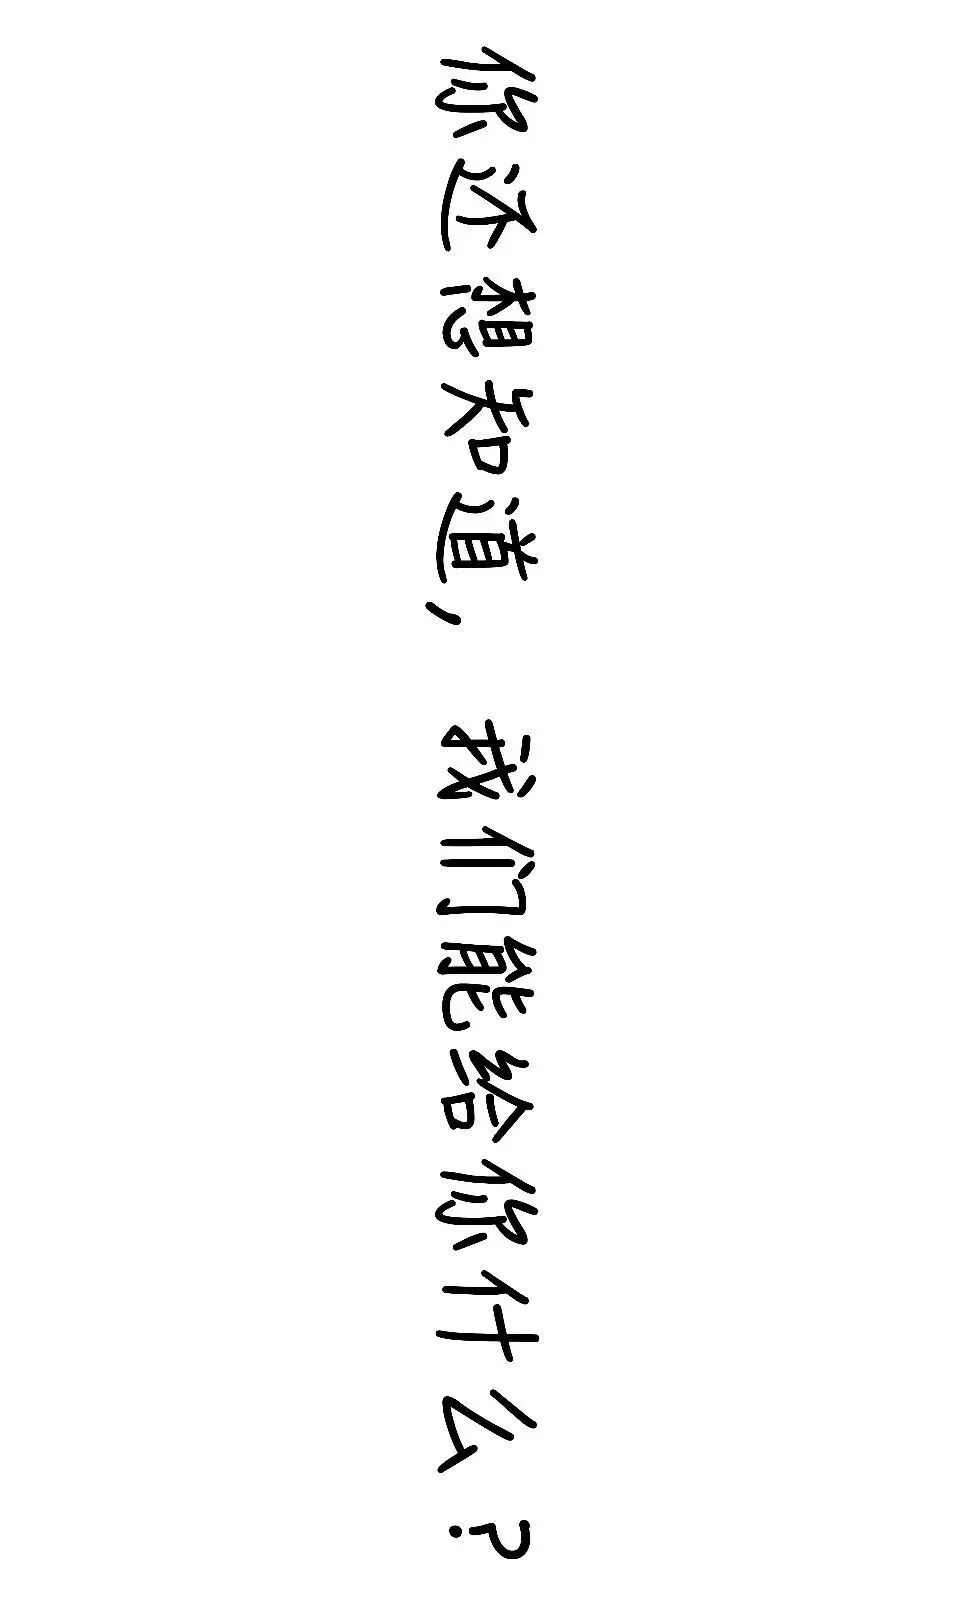 你还想知道，我们能给你什么？